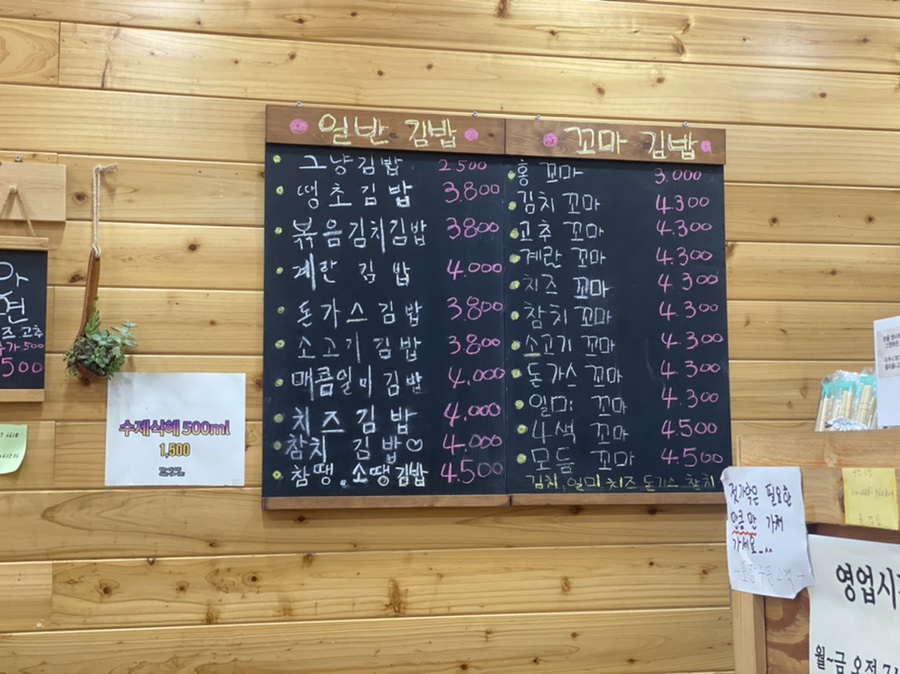 일반 김밥
그냥김밥 2500
땡초김밥 3.800
볶음김치김밥 3.800
계란 김밥 4.000
돈가스김밥 3.800
소고기 김밥 3.800
매콤일미김밥 4.000
치즈김밥 4.000
참치 김밥♡ 4.000
참땡.소땡김밥 4.500
꼬마 김밥
홍 꼬마 3.000
김치 꼬마 4.300
고추 꼬마 4.300
계란 꼬마 4.300
치즈 꼬마 4.300
참치 꼬마 4.300
소고기 꼬마 4.300
돈가스 꼬마 4.300
일미 꼬마 4.300
4색 꼬마 4.500
모듬 꼬마 4.500
김치, 일미 치즈 돈가스 참치
수제식혜 500ml
1,500
즈고추
가500
500
젓가락은 필요한
만큼만 가져
가세요_^^
영업시
월~금 오전 7